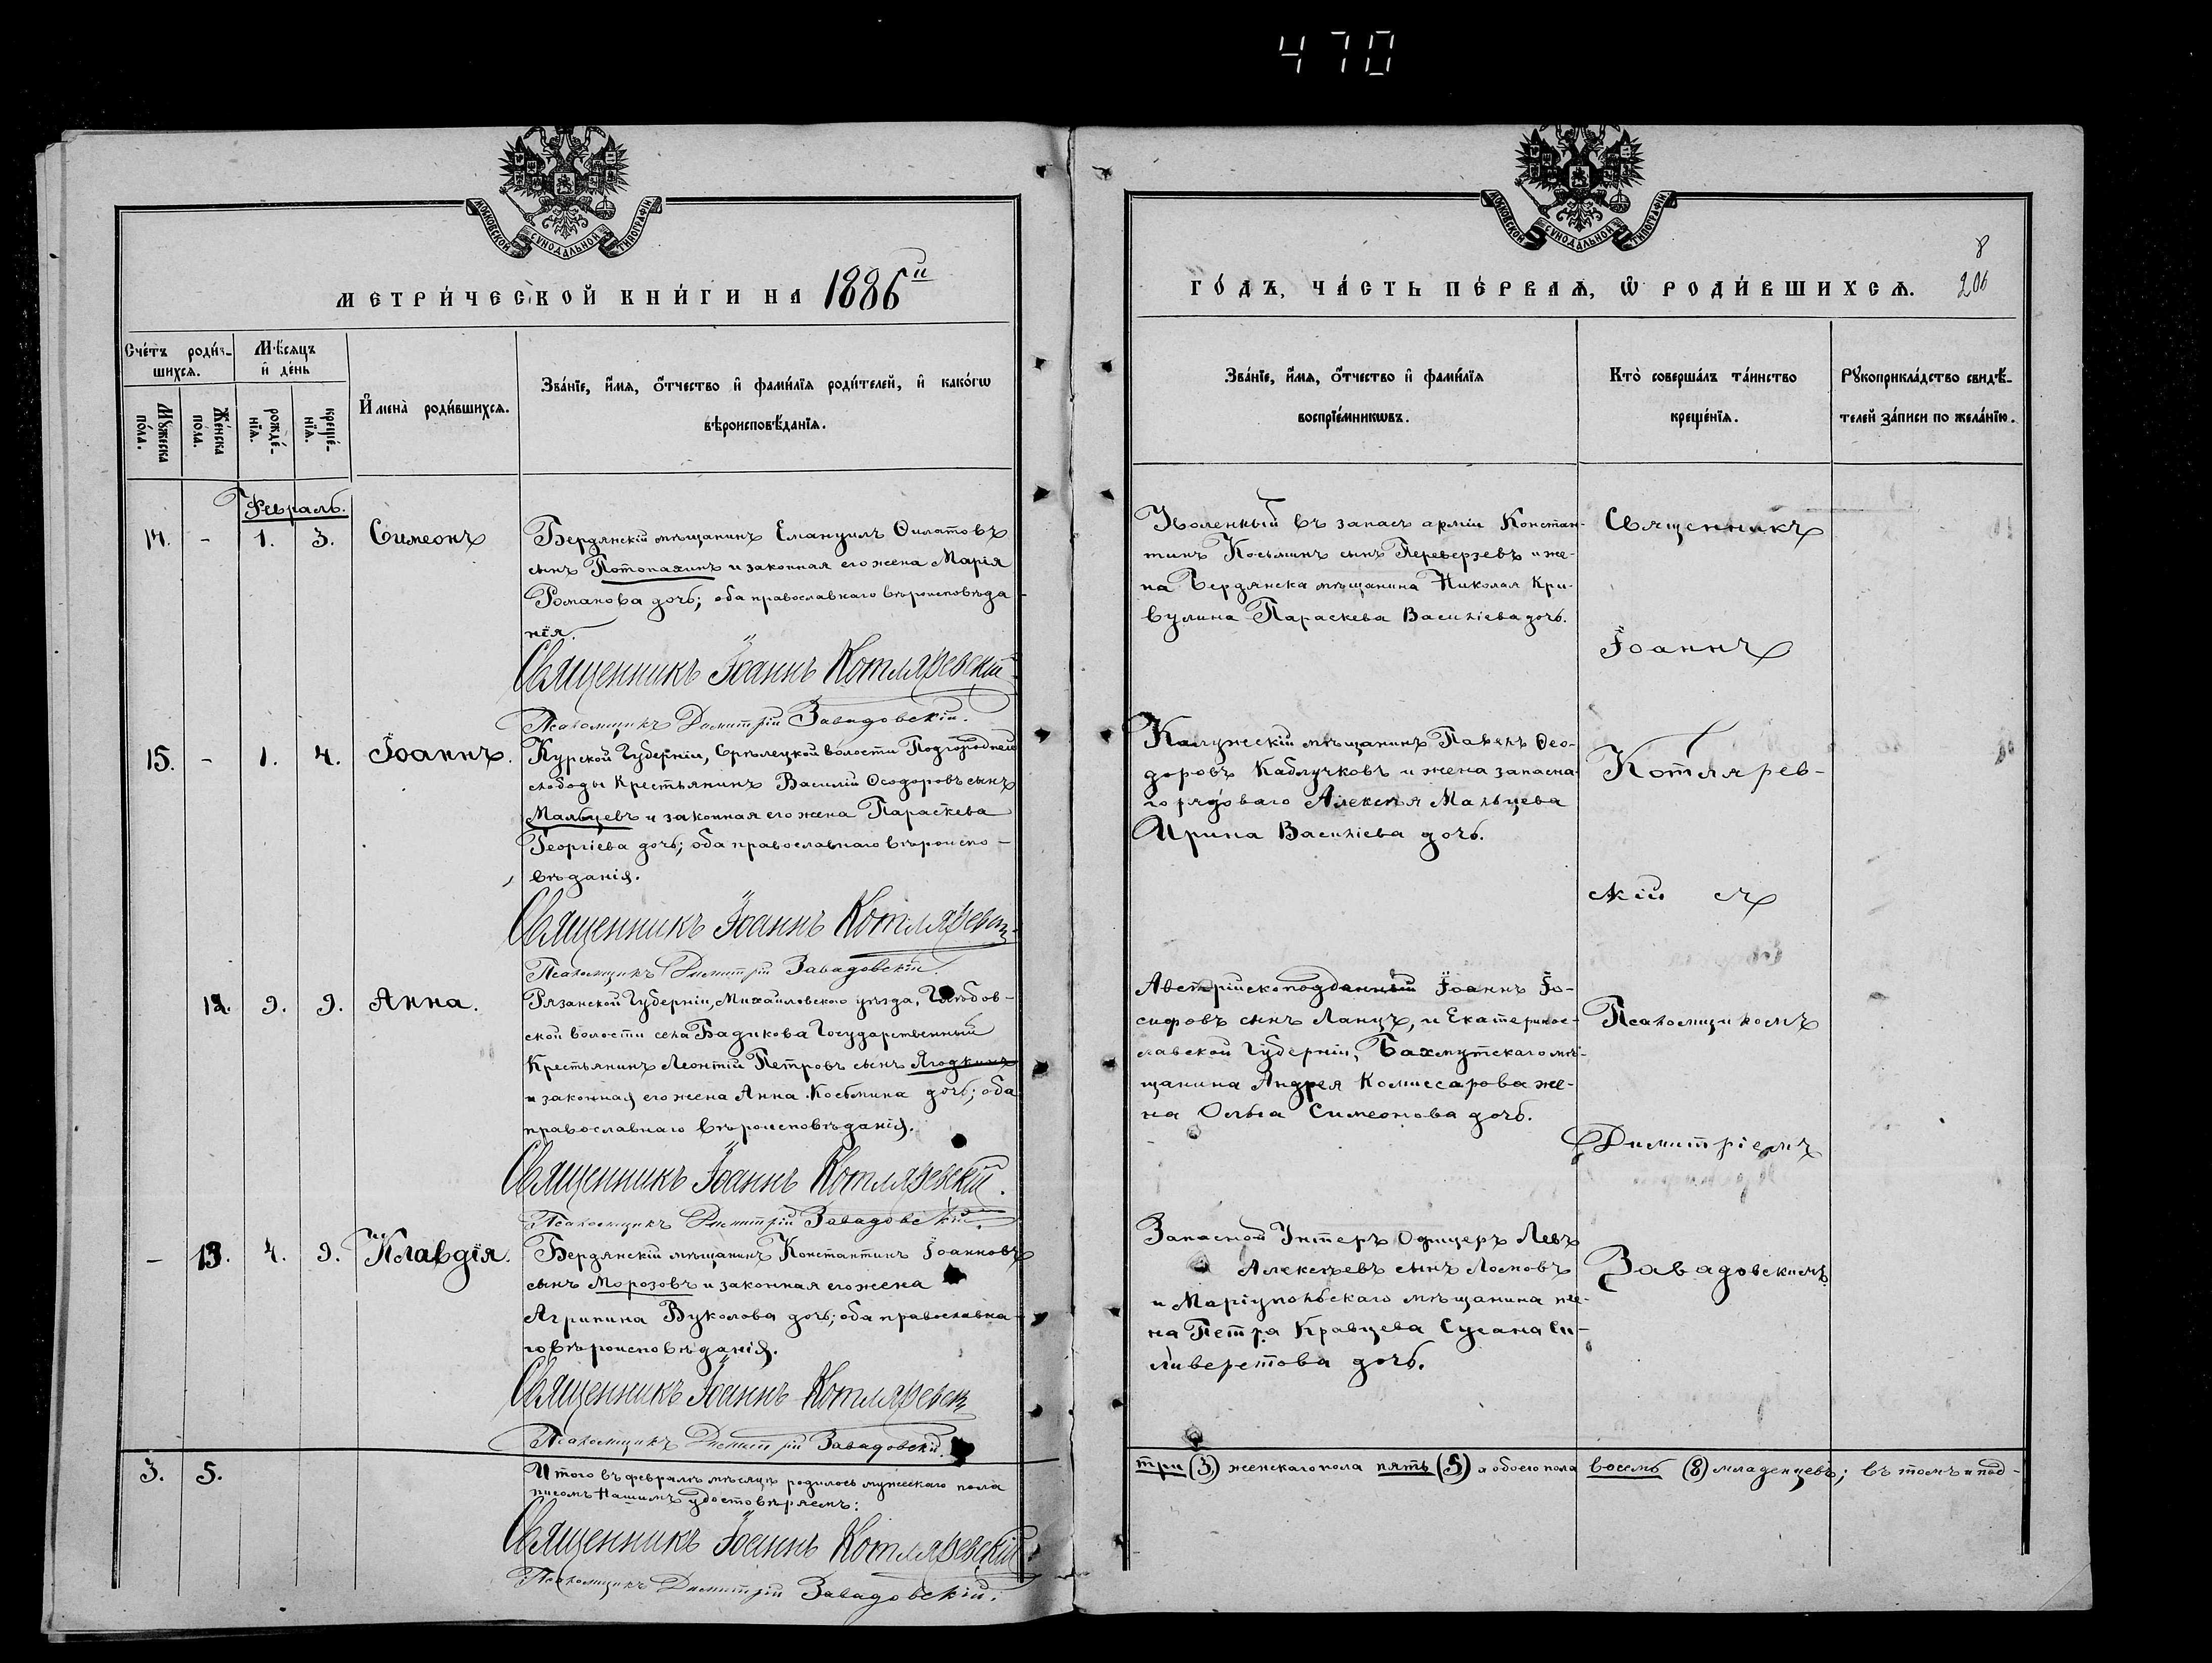 470
МОСКОВСКОЙ СѴНОДАЛЬНОЙ ТИПОГРАФІИ
МЕТРИ́ЧЕСКОЙ КНИ́ГИ НА 1886й
Сче́тъ роди́в-
шихсѧ.
Мѣ́сѧцъ
и҆ де́нь
Мꙋ́жеска
по́ла.
Же́нска
по́ла.
рожде́-
нїѧ.
креще́-
нїѧ.
И҆мена̀ роди́вшихсѧ.
Зва́нїе, и҆́мѧ, ѻ҆́тчество и҆ фами́лїѧ роди́телей, и҆ како́гѡ
вѣроисповѣ́данїѧ.
Февраль.
14. - 1. 3. Симеонъ
Бердянскій мѣщанинъ Емануилъ Ѳилатовъ
сынъ Потопахинъ и законная его жена Марія
Романова дочь; оба православнаго вѣроисповѣда
нія.
Священникъ Іоаннъ Котляревскій
Псаломщикъ Димитрій Завадовскій.
15. - 1. 4. Іоаннъ.
Курской Губерніи, Стрѣлецкой волости Подгородней
слободы Крестьянинъ Василій Ѳеодоровъ сынъ
Мальцевъ и законная его жена Параскева
Георгіева дочь; оба православнаго вѣроиспо-
вѣданія.
Священникъ Іоаннъ Котляревскій
Псаломщикъ Димитрій Завадовскій.
12. 9. 9. Анна.
Рязанской Губерніи, Михайловскаго уѣзда, Глѣбов-
ской волости села Бадикова Государственный
Крестьянинъ Леонтій Петровъ сынъ Ягодкинъ
и законная его жена Анна Косьмина дочь; оба
православнаго вѣроисповѣданія.
Священникъ Іоаннъ Котляревскій.
Псаломщикъ Димитрій Завадовскій.
- 13. 4. 9. Клавдія.
Бердянскій мѣщанинъ Константинъ Іоанновъ
сынъ Морозовъ и законная его жена
Агрипина Вуколова дочь; оба православна-
го вѣроисповѣданія.
Священникъ Іоаннъ Котляревскій
Псаломщикъ Димитрій Завадовскій.
3. 5.
Итого въ февралѣ мѣсяцѣ родилось мужескаго пола
писомъ Нашимъ удостовѣряемъ:
Священникъ Іоаннъ Котляревскій.
Псаломщикъ Димитрій Завадовскій.
МОСКОВСКОЙ СѴНОДАЛЬНОЙ ТИПОГРАФІИ
8
206
ГО́ДЪ, ЧА́СТЬ ПЕ́РВАѦ, Ѡ҆ РОДИ́ВШИХСѦ.
Зва́нїе, и҆́мѧ, ѻ҆́тчество и҆ фами́лїѧ
воспрїе́мникѡвъ.
Кто̀ соверша́лъ та́инство
креще́нїѧ.
Рꙋкоприкла́дство свидѣ́-
телей за́писи по жела́нїю.
Уволенный въ запасъ арміи Констан-
тинъ Косьминъ сынъ Переверзевъ и же-
на Бердянска мѣщанина Николая Кри-
вулина Параскева Василіева дочь.
Священникъ
Іоаннъ
Калужскій мѣщанинъ Павелъ Ѳео-
доровъ Каблучковъ и жена запасна-
го рядоваго Алексѣя Мальцева
Ирина Василіева дочь.
Котлярев-
скій съ
Австрійскоподданный Іоаннъ Іо-
сифовъ сынъ Ланцъ, и Екатеринос-
лавской Губерніи, Бахмутскаго мѣ-
щанина Андрея Комиссарова же-
на Ольга Симеонова дочь.
Псаломщикомъ
Димитріемъ
Запасной Унтеръ Офицеръ Левъ
Алексѣевъ сынъ Лосповъ
и Маріупольскаго мѣщанина же-
на Петра Кравцева Сусана Си-
ливерстова дочь.
Завадовскимъ.
три (3) женскаго пола пять (5) а обоего пола восемь (8) младенцевъ; въ томъ и под-